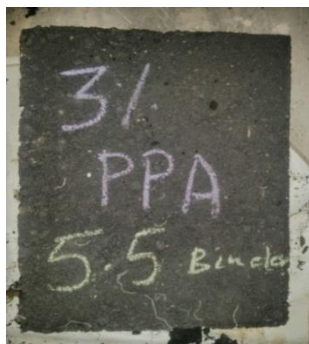 3%
PPA
5.5 Binder